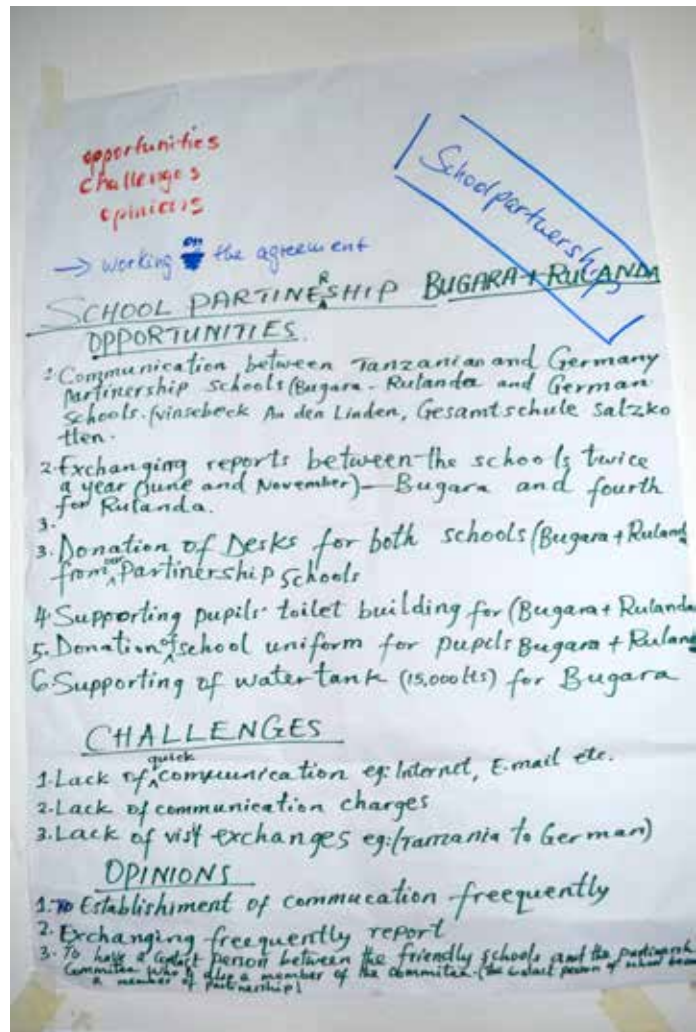 opportunities
challenges
opinions
→ working on the agreement
Schoolpartnerships
SCHOOL PARTINERSHIP BUGARA + RULANDA
OPPORTUNITIES.
1. Communication between Tanzanian and Germany
Partinership schools (Bugara - Rulanda and German
Schools. (Vinsebeck An den Linden, Gesamtschule Salzko
tten.
2. Exchanging reports between the schools twice
a year (june and November) — Bugara and fourth
for Rulanda.
3.
3. Donation of Desks for both schools (Bugara + Ruland
from our Partinership Schools
4. Supporting pupils' toilet building for (Bugara + Rulanda
5. Donation of school uniform for pupils Bugara + Ruland
6. Supporting of water tank (15,000 lts) for Bugara
CHALLENGES
1. Lack of quick communication eg: Internet, E.mail etc.
2. Lack of communication charges
3. Lack of visit exchanges eg: (Tanzania to German)
OPINIONS
1. To Establishment of commucation freequently
2. Exchanging freequently report
3. To have a contact person between the friendly schools and the partinersh
Commitee who is also a member of the commitee. (the contact person of school
a member of partnership)